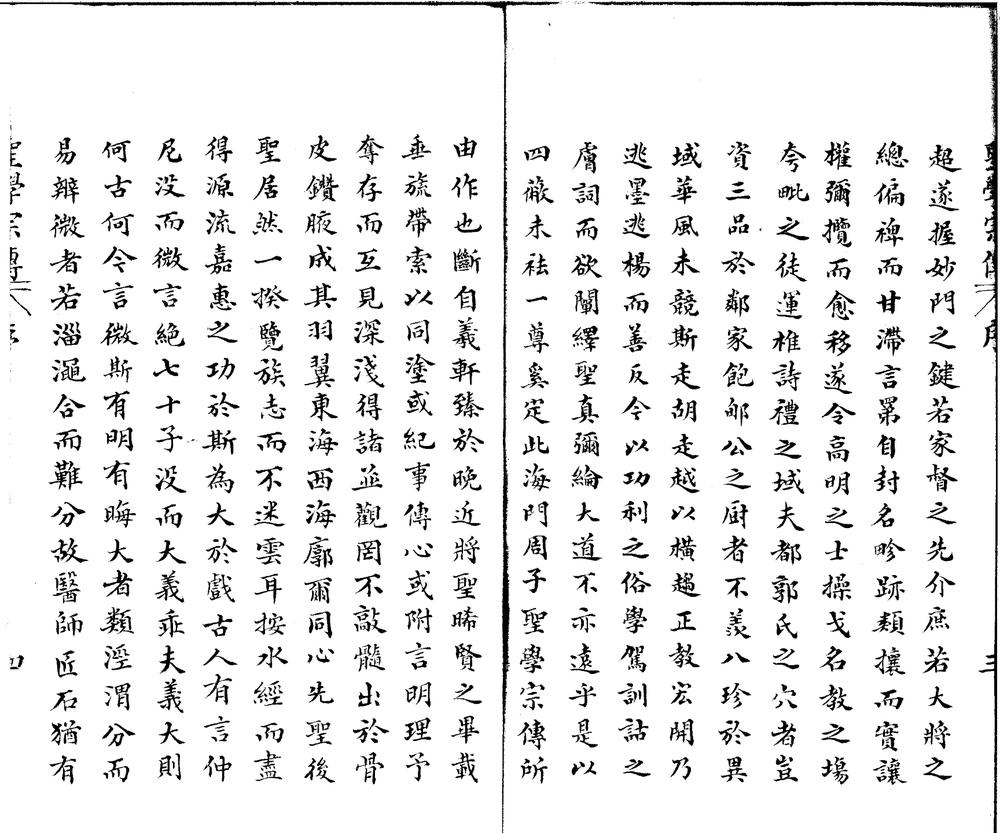 超遂握妙門之鍵若家督之先介庶若大將之
總偏裨而甘滯言第自封名畛跡類攘而實讓
權彌攬而愈移遂令高明之士操戈名教之塲
夸毗之徒運椎詩禮之域夫都郭氏之穴者豈
資三品於鄰家飽郇公之廚者不羨八珍於異
域華風未競斯走胡走越以橫趨正教宏開乃
逃墨逃楊而善反今以功利之俗學駕訓詁之
膚詞而欲闡繹聖真彌綸大道不亦遠乎是以
四薇未祛一尊奚定此海門周子聖學宗傳所
由作也斷自羲軒臻於晚近將聖睎賢之畢載
垂旒帶索以同塗或紀事傳心或附言明理予
奪存而互見深淺得諸並觀罔不敲髓出於骨
皮鑽腋成其羽翼東海西海廓爾同心先聖後
聖居然一揆覽族志而不迷雲耳按水經而盡
得源流嘉惠之功於斯為大於戲古人有言仲
尼没而微言絕七十子没而大義乖夫義大則
何古何今言微斯有明有晦大者類涇渭分而
易辨微者若淄澠合而難分故醫師匠石猶有
聖學宗傳 序 三
聖學宗傳 序 四